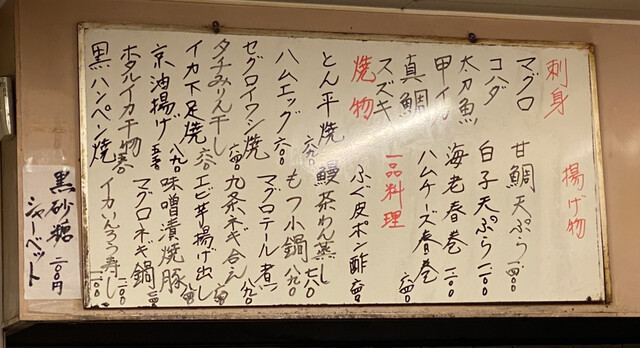 刺身
マグロ
コハダ
太刀魚
甲イカ
真鯛
スズキ
焼物
とん平焼 六九〇
ハムエッグ 六〇〇
セグロイワシ焼
タチみりん干し 六四〇
イカ下足焼 六〇〇
京油揚げ 五五〇
ホタルイカ干物
黒ハンペン焼
揚げ物
甘鯛天ぷら
白子天ぷら 一一〇〇
海老春巻 一一〇〇
ハムチーズ春巻 六四〇
一品料理
ふぐ皮ポン酢 六四〇
鰻茶わん蒸し 七八〇
もつ小鍋 八九〇
マグロテール煮 八九〇
九条ネギ合え
エビ芋揚げ出し
味噌漬焼豚
マグロネギ鍋
イカいんろう寿し
黒砂糖
シャーベット
二〇〇円